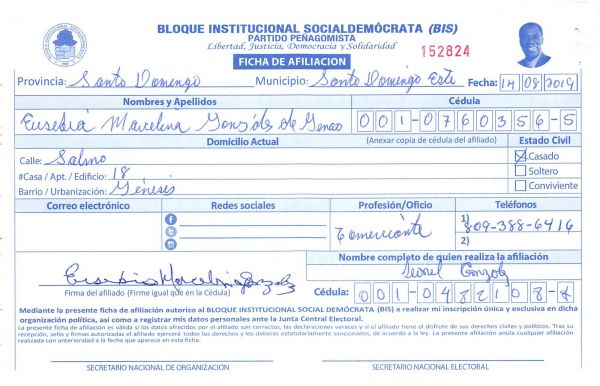 BLOQUE INSTITUCIONAL SOCIALDEMÓCRATA (BIS)
PARTIDO PEÑAGOMISTA
Libertad, Justicia, Democracia y Solidaridad
152824
FICHA DE AFILIACION
Provincia: Santo Domingo Municipio: Santo Domingo Este Fecha: 14 08 2019
Nombres y Apellidos Cédula
Eusebia Marcelina Gonzáles de Genao 001-0760356-5
Domicilio Actual (Anexar copia de cédula del afiliado) Estado Civil
Calle: Salmo Casado
#Casa / Apt. / Edificio: 18 Soltero
Barrio / Urbanización: Génesis Conviviente
Correo electrónico Redes sociales Profesión/Oficio Teléfonos
Comerciante 1) 809-388-6416
2)
Nombre completo de quien realiza la afiliación
Leonel Gonzalez
Eusebia Marcelina Gonzalez
Firma del afiliado (Firme igual que en la Cédula) Cédula: 001-0482108-8
Mediante la presente ficha de afiliación autorizo al BLOQUE INSTITUCIONAL SOCIAL DEMÓCRATA (BIS) a realizar mi inscripción única y exclusiva en dicha
organización política, así como a registrar mis datos personales ante la Junta Central Electoral.
La presente ficha de afiliación es válida si los datos ofrecidos por el afiliado son correctos, las declaraciones veraces y si el afiliado tiene el disfrute de sus derechos civiles y políticos. Tras su
recepción, sello y firmas autorizadas el afiliado ejercerá todos los derechos y los deberes estatutariamente sancionados, de acuerdo a la ley. La presente afiliación anula cualquier afiliación
realizada con anterioridad a la fecha que aparece en esta ficha.
SECRETARIO NACIONAL DE ORGANIZACIÓN SECRETARIO NACIONAL ELECTORAL